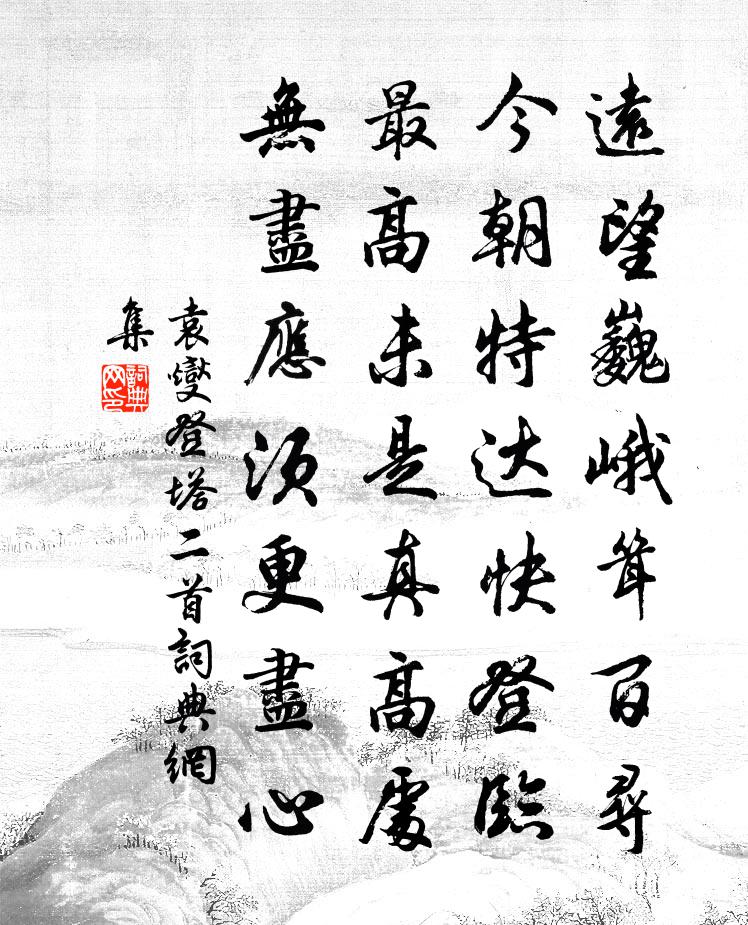 遠望巍峨聳百尋
今朝特达快登臨
最高未是真高處
無盡應須更盡心
袁燮登塔二首詞典網
集
詞典网印